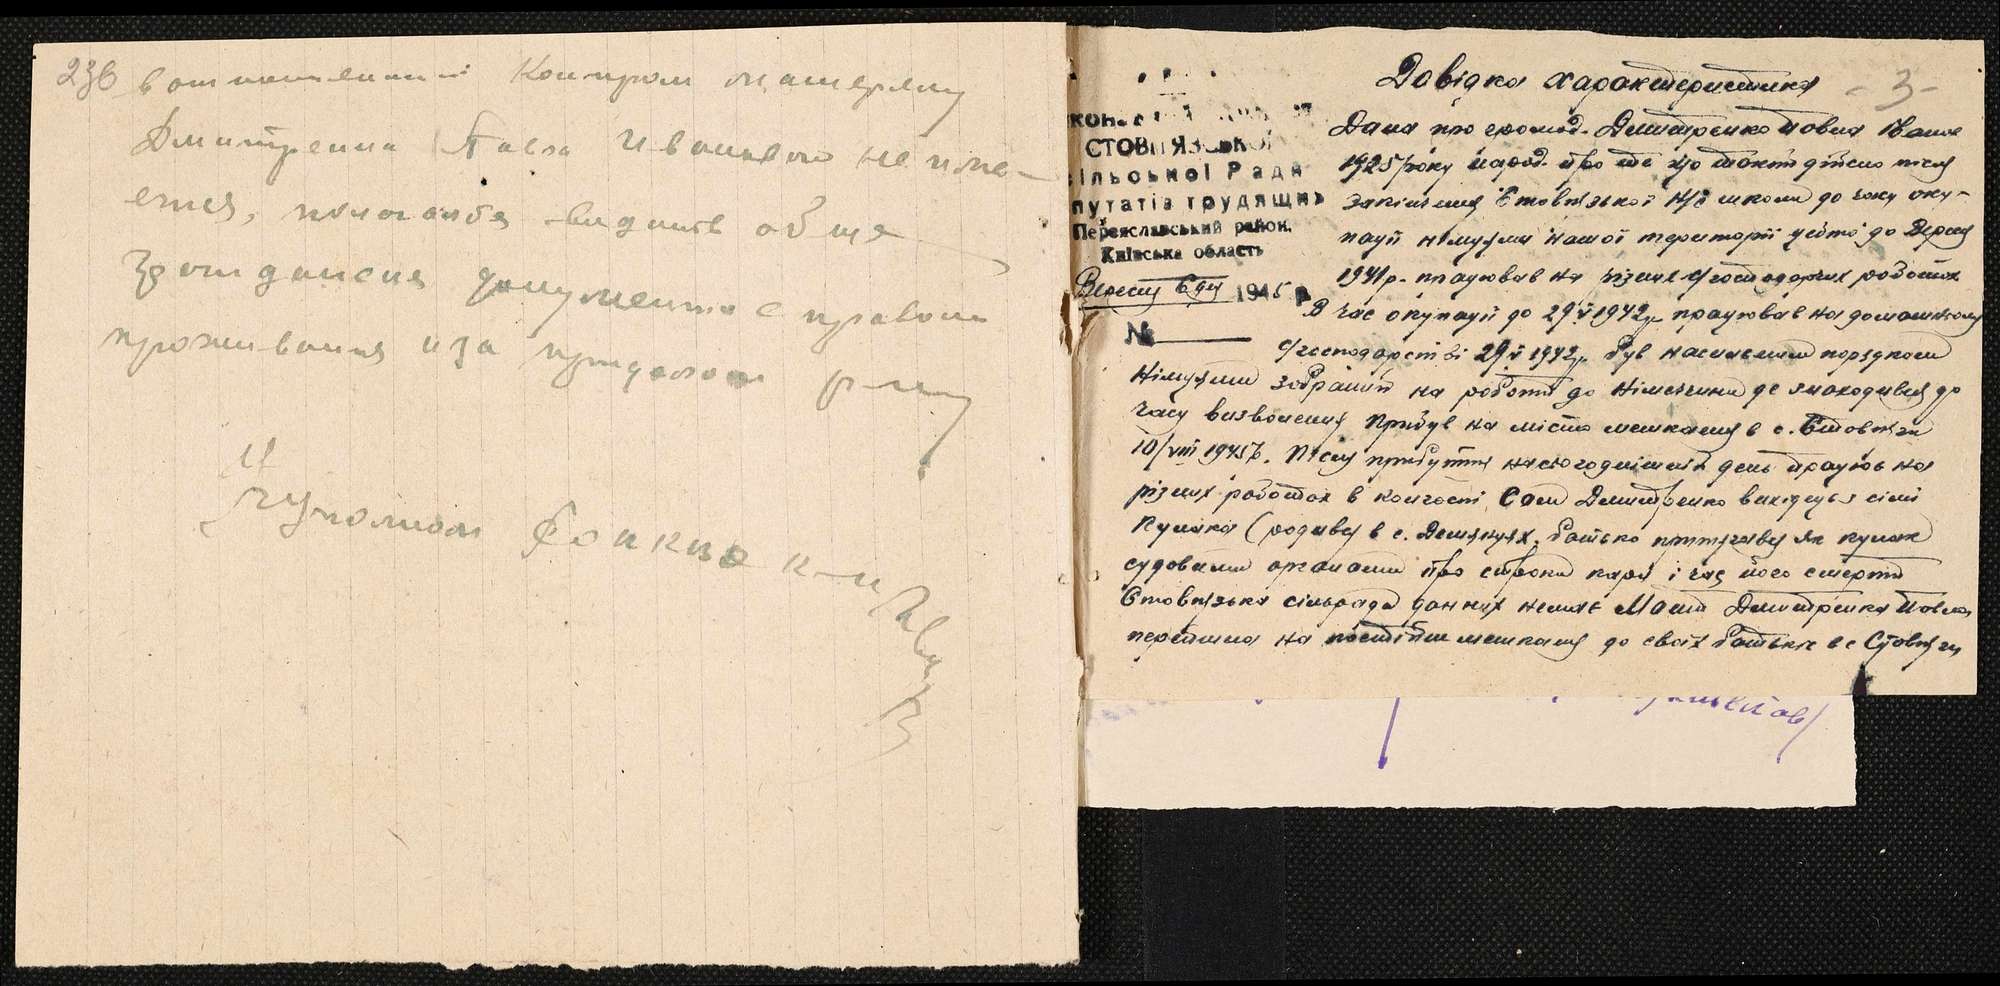 23в в отношении Компром материалу
Дмитренка Павла Ивановича не име-
ется, полагалбя видать обще
гражданския документа с правом
проживания и за пределом р-на
Д
- 3 -
Довідка характеристика
СТОВП'ЯЗСЬКОЇ
сільської Ради
депутатів трудящих
Переяславський район,
Київська область
Вересня 6 дня 1945 р.
№
Дана про громод. Дмитренко Павла Іванов
1925 року народ. про те що такий дійсно після
закінчення Стовп'язької н/с школи до часу оку-
пації німцями нашої території тобто до Вересня
1941 р. працював на різних с/господарчих роботах
В час окупації до 29/V 1942 р працював на домашньому
с/господарстві 29/V 1942 р був насильним порядком
німцями забраний на роботи до Німеччини де знаходився до
часу визволення Прибув на місто мешкання в с. Стовп'яги
10/VIII 1945 р. Після прибуття на сьогоднішній день працює на
різних роботах в колгоспі. Сам Дмитренко виходець з сімї
кулака (родився в с. Дем'янцях, батько притягався як кулак
судовими органами про строки кари і час його смерти
Стовп'язька сільрада данних немає Мати Дмитренка Павла
перейшла на постійне мешкання до своїх батьків в с Стовп'яги